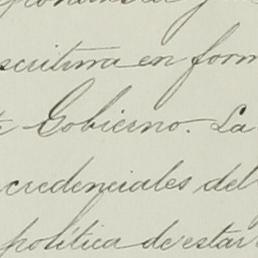 scritura en form
Gobierno. La
credenciales del
política de estar